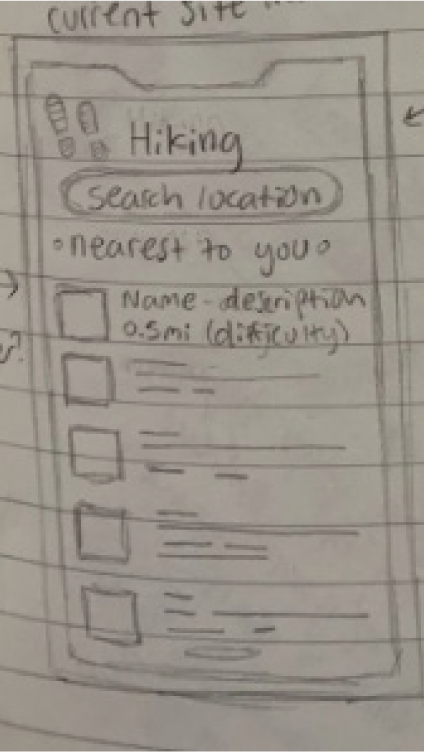 current site
Hiking
search location
nearest to you
Name - description
0.5mi (difficulty)